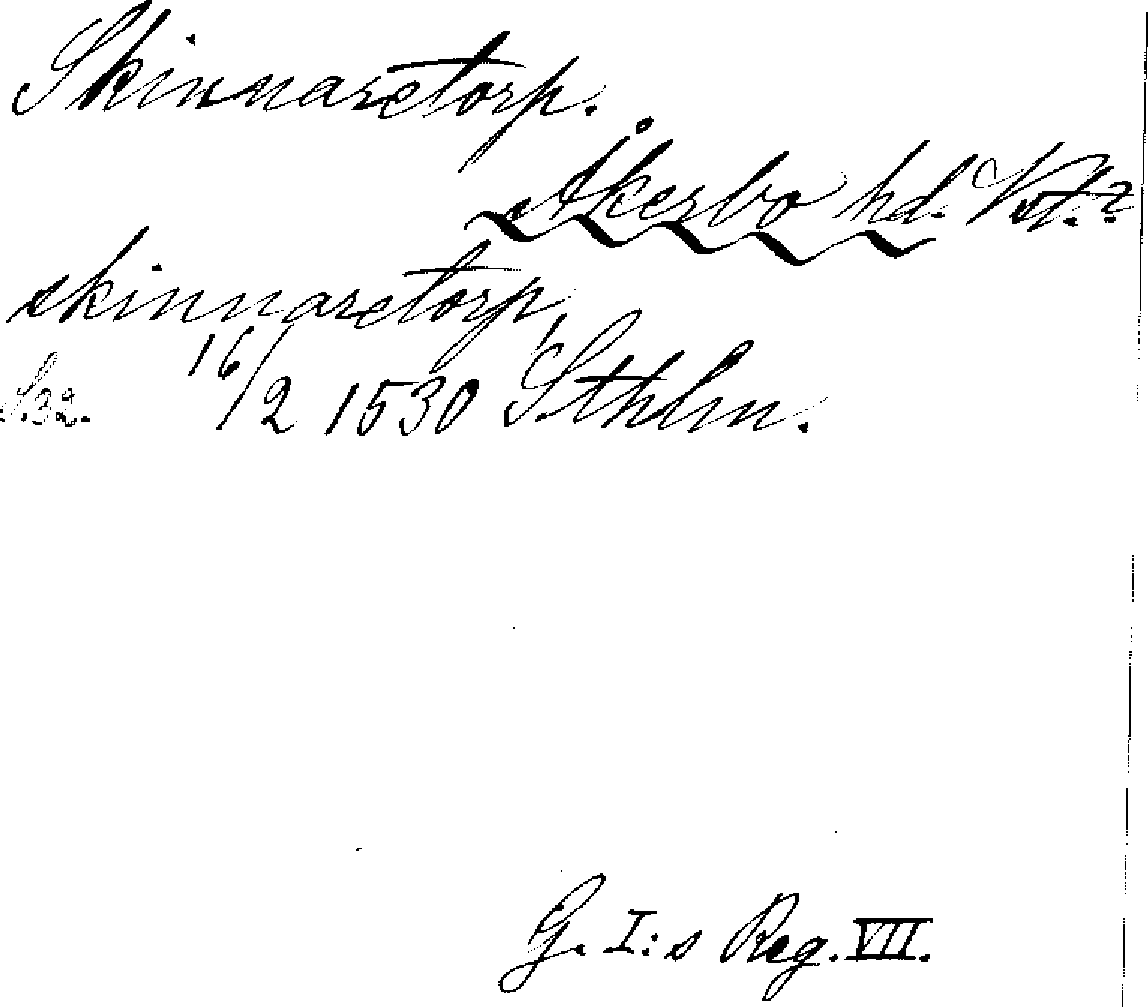 Skinnaretorp.
Åkerbo hd. Vstm.?
skinnaretorp,
S. 32. 16/2 1530 Sthlm.
G. I:s Reg. VII.